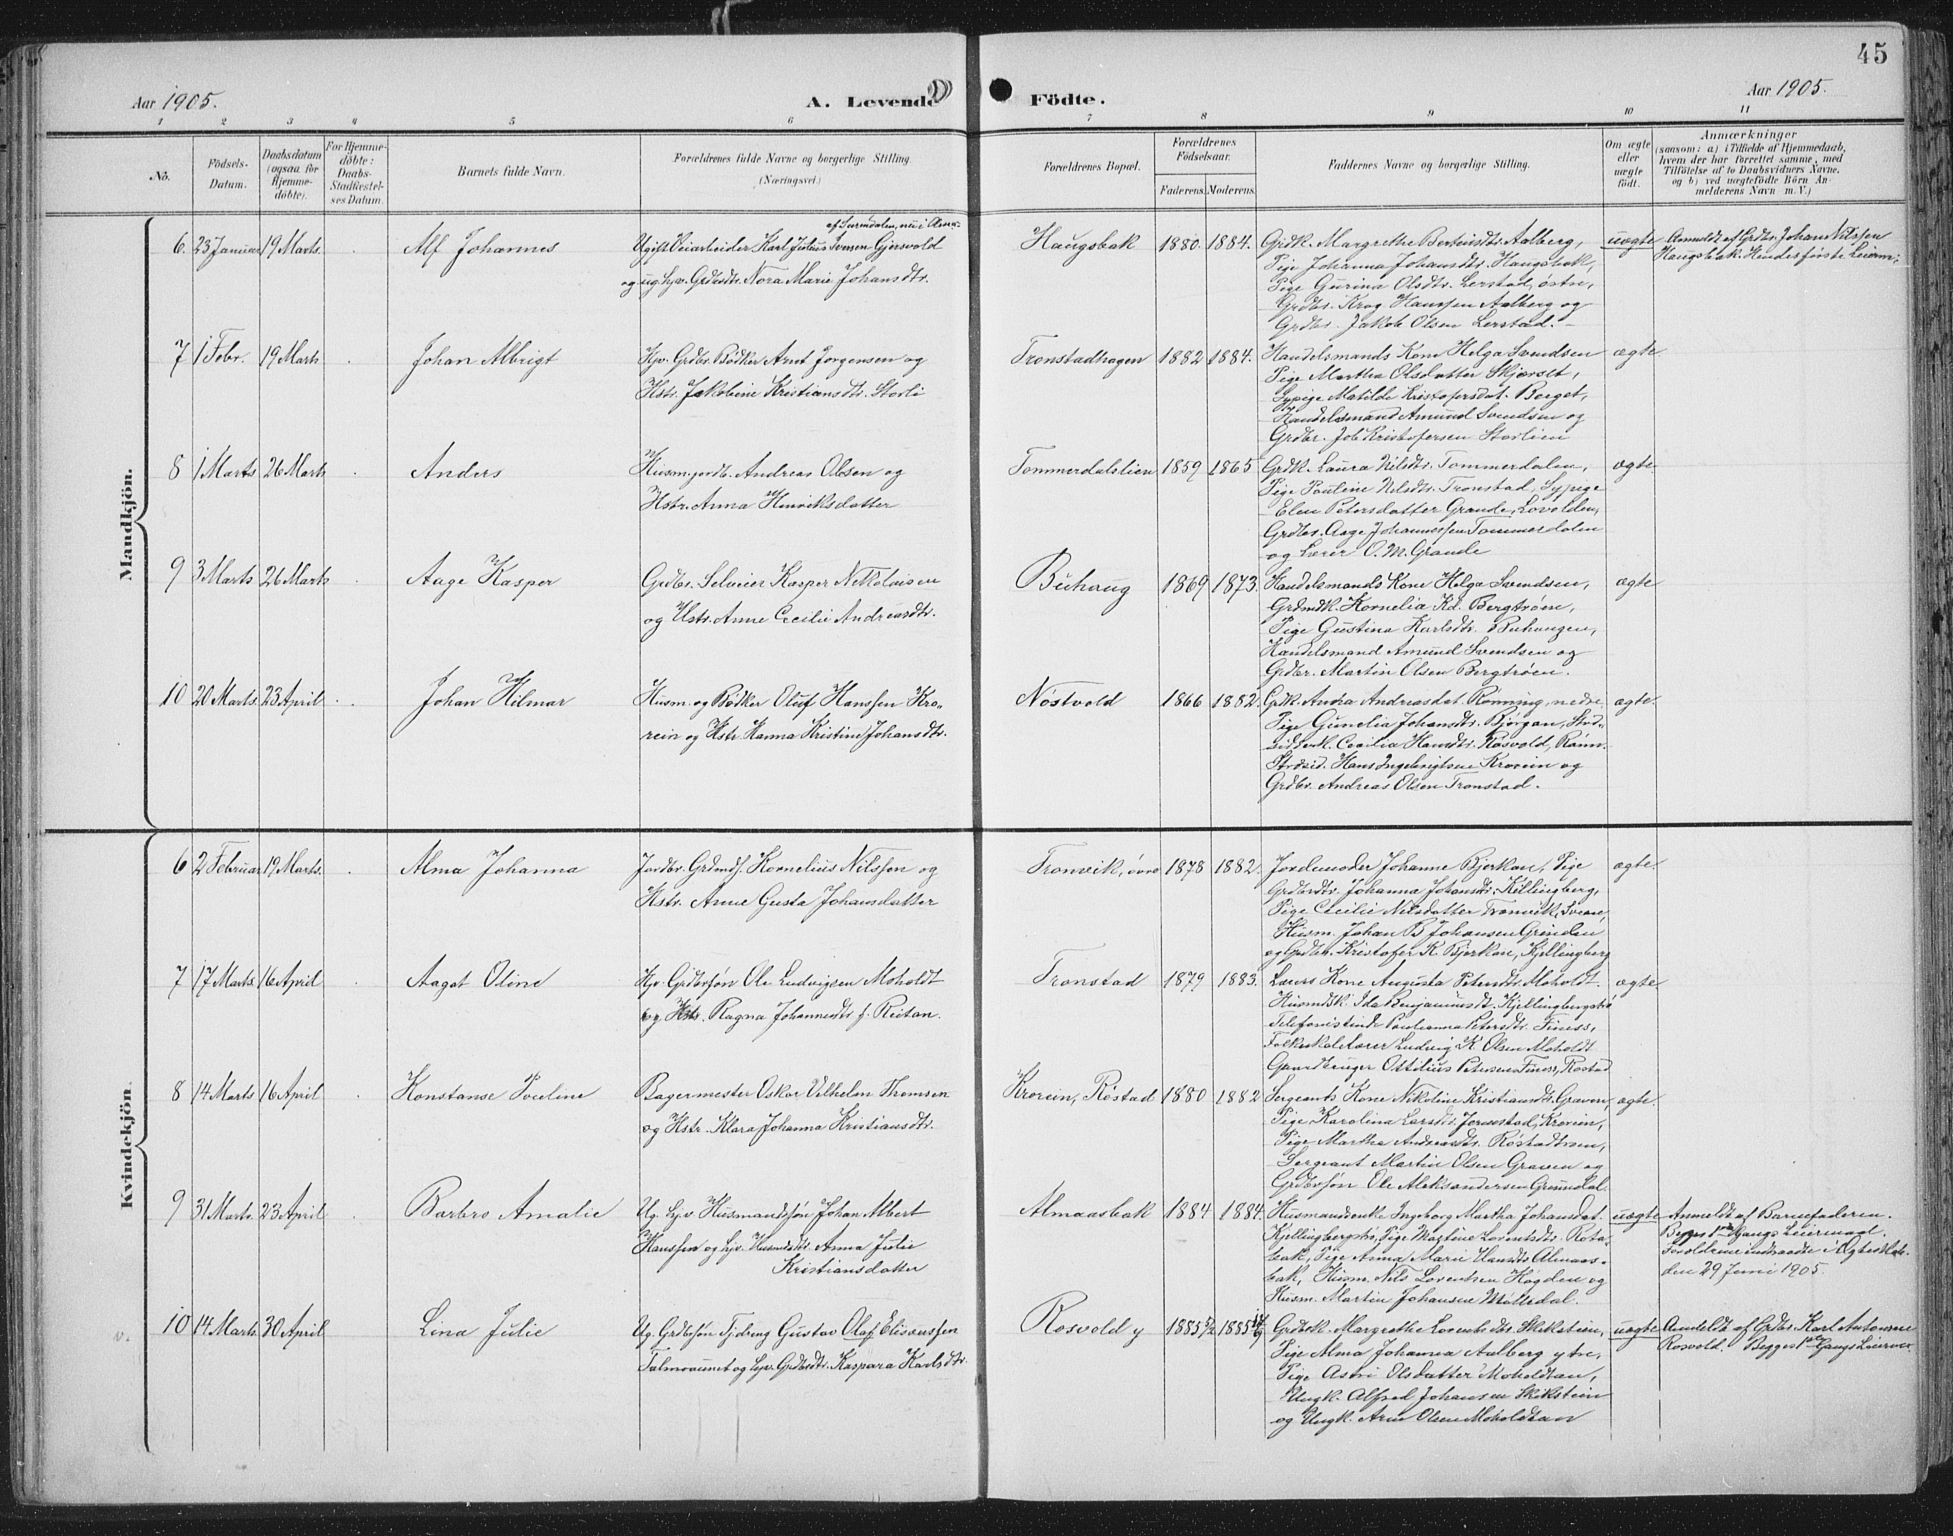 45
Aar 1905.
A. Levende Födte.
Aar 1905.
1 2 3 4 5 6 7 8 9 10 11
No.
Födsels-Datum.
Daabsdatum (ogsaa for Hjemme-döbte).
For Hjemme-döbte: Daabs-Stadfæstel-ses Datum.
Barnets fulde Navn.
Forældrenes fulde Navne og borgerlige Stilling.
(Næringsvei.)
Forældrenes Bopæl.
Forældrenes Födselsaar.
Faderens. Moderens.
Faddernes Navne og borgerlige Stilling.
Om ægte eller uægte födt.
Anmærkninger
(saasom: a) i Tilfælde af Hjemmedaab,
hvem der har forrettet samme, med
Tilföielse af to Daabsvidners Navne.
og b) ved uægtefödte Börn An-
melderens Navn m. V.)
Mandkjön.
6. 23 Januar 19 Marts. Alf Johannes
Ugift Veiarbeider Karl Julius Jensen Gjersvold
og ug. hjv. Grdbrdtr. Nora Marie Johansdtr.
Haugsbak 1880. 1884.
Grdk. Margrethe Berteusdtr. Aalberg,
Pige Johanna Johansdtr. Haugsbak,
Pige Gurina Olsdtr. Lerstad, østre,
Grdbr. Krog Hanssen Aalberg og
Grdbr. Jakob Olsen Lerstad.
uægte
Anmeldt af Grdbr. Johan Nilssen
Haugsbak. Hendes første Leierm:
7 1 Febr. 19 Marts Johan Albrigt
Hjv. Grdbr. Bødker Arnt Jørgensen og
Hstr. Jakobine Kristiansdtr. Storli
Tronstadhagen 1882 1884.
Handelsmands Kone Helga Svendsen
Pige Martha Olsdatter Skjerset,
Sypige Matilde Kristofersdat. Berget,
Handelsmand Amund Svendsen og
Grdbr. Job Kristofersen Storlien
ægte
8 1 Marts 26 Marts Anders
Husm. jordb. Andreas Olsen og
Hstr. Anna Henriksdatter
Tømmerdalslien 1859 1865
Grdk. Laura Nilsdtr. Tømmerdalen,
Pige Pauline Nilsdtr. Tronstad, Sypige
Elen Petersdatter Grande, Lovelden,
Grdbr. Aage Johannessen Tømmerdalen
og Lærer O. M. Grande
ægte
9 3 Marts 26 Marts Aage Kasper
Grdbr. Selveier Kasper Nikolaisen
og Hstr. Anne Cecilie Andreasdtr.
Buhaug 1869 1873.
Handelsmands Kone Helga Svendsen,
Grdmdk. Kornelia Kd. Bergtrøen,
Pige Gustina Karlsdtr. Buhaugen,
Handelsmand Amund Svendsen og
Grdbr. Martin Olsen Bergtrøen.
ægte
10 20 Marts 23 April Johan Hilmar
Husm. og Bødker Oluf Hanssen Kro-
rein og Hstr. Hanna Kristine Johansdtr.
Nøstvold 1866 1882.
Grk. Andrea Andreasdat. Rønning, nedre,
Pige Gunelia Johansdtr. Bjørgan,
Cecilia Hansdtr. Rosvold,
Hans Ingebrigtsen Krorein og
Grdbr. Andreas Olsen Tronstad.
ægte.
Kvindekjön.
6 2 Februar 19 Marts. Alma Johanna
Jordbr. Grdmdf. Kornelius Nilssen og
Hstr. Anne Gusta Johansdatter
Tronvik, 1878 1882.
Jordemoder Johanne Bjerkan, Pige
Grdbrdtr. Johanna Johansdtr. Killingberg,
Pige Cecilie Nilsdatter Tronvik,
Husm. Johan B Johansen Grinden
og Grdbr. Kristofer K. Bjerkan, Kjellingberg
ægte.
7 17 Marts. 16 April Aagot Oline
Hjv. Grdbrsøn Ole Ludvigsen Moholdt
og Hstr. Ragna Johannesdtr. f. Reitan.
Tronstad 1879 1883.
Lærers Kone Augusta Petersdtr. Moholdt.
Husmdsk. Ida Benjaminsdt. Kjellingbergstrø
Telefonistinde Paulianna Petersdtr. Finess,
Folkeskolelærer Ludvig K. Olsen Moholdt
Gaardbruger Ottilius Petersen Finess, Rostad
ægte
8 14 Marts 16 April Konstanse Pauline
Bagermester Oskar Vilhelm Thomsen
og Hstr. Klara Johanna Kristiansdtr.
Krorein, Røstad 1880 1882
Sergeants Kone Nikoline Kristiansdtr. Graven,
Pige Karolina Larsdtr. Jernestad, Krorein,
Pige Martha Andreasdtr. Røstadtrøen,
Sergeant Martin Olsen Graven og
Grdbrsøn Ole Aleksandersen Grundal.
ægte.
9 31 Marts 23 April Barbro Amalie
Ug. hjv. Husmandssøn Johan Albert
Hanssen og hjv. Husmdsdtr. Anna Julie
Kristiansdatter
Almaasbak 1884 1884.
Husmandsenke Ingeborg Martha Johansdat.
Kjellingbergstrø, Pige Martine Lorentsdtr. Rota-
bak, Pige Anna Marie Hansdtr. Almaas-
bak, Husm. Nils Lorentsen Hogden og
Husm. Martin Johansen Mølledal.
uægte
Anmeldt af Barnefaderen.
Begges 1ste Gangs Leiermaal
Forældrene indtraadte i Ægteskab
den 29 Juni 1905.
10 14 Marts 30 April Lina Julie
Ug. Grdbrsøn Gustav Olaf Elisaussen
Talmoaunet og hjv. Grdbrdtr. Kaspara Karlsdtr.
Rosvold y 1885 5/2 1885
Grdbrk. Margrethe Lorentsdtr. Skikstein,
Pige Alma Johansea Aalberg ytre,
Pige Astri Olsdatter Moholdtan,
Ungk. Alfred Johansen Skikstein
og Ungk. Arne Olsen Moholdtan
uægte
Anmeldt af Grdbr. Karl Antonsen
Rosvold. Begges 1ste Gangs Leierm